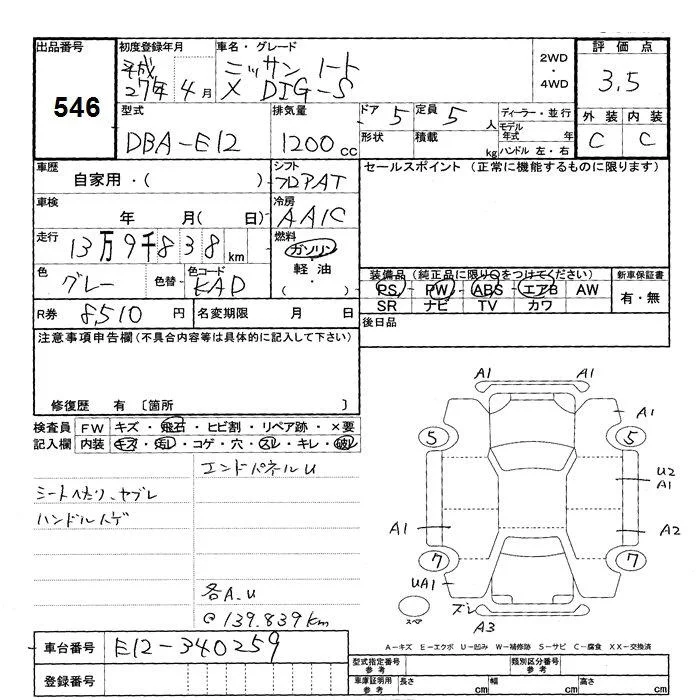 出品番号
546
初度登録年月
平成
27年 4月
車名・グレード
ニッサン ノート
X DIG-S
2WD
・
4WD
評価点
3.5
外装 内装
C C
型式
DBA-E12
排気量
1200 cc
ドア 5
定員 5 人
ディーラー・並行
モデル年式 年
形状
積載 kg
ハンドル 左・右
車歴
自家用・( )
シフト
フロアAT
セールスポイント (正常に機能するものに限ります)
車検
年 月( 日)
冷房
AAC
走行
13万9千838km
燃料
ガソリン
軽油
・
( )
色
グレー
色替
色コード
KAD
装備品 (純正品に限り○をつけてください)
PS PW ABS エアB AW
SR ナビ TV カワ
新車保証書
有・無
R券 8,510 円
名変期限 月 日
後日品
注意事項申告欄 (不具合内容等は具体的に記入して下さい)
修復歴 有 〔箇所 〕
検査員 FW キズ・飛石・ヒビ割・リペア跡・×要
記入欄 内装 キズ・汚レ・コゲ・穴・スレ・キレ・破レ
エンドパネルU
シートへたり、ヤブレ
ハンドルハゲ
各A.U
@139.839km
A1 A1 A1
5 5
U2
A1
A1 A2
7 7
UA1
ズレ
A3
スペア
A-キズ E-エクボ U-凹み W-補修跡 S-サビ C-腐食 XX-交換済
車台番号 E12-340259
登録番号
型式指定番号
参考
類別区分番号
参考
車庫証明用
参考
長さ cm 幅 cm 高さ cm